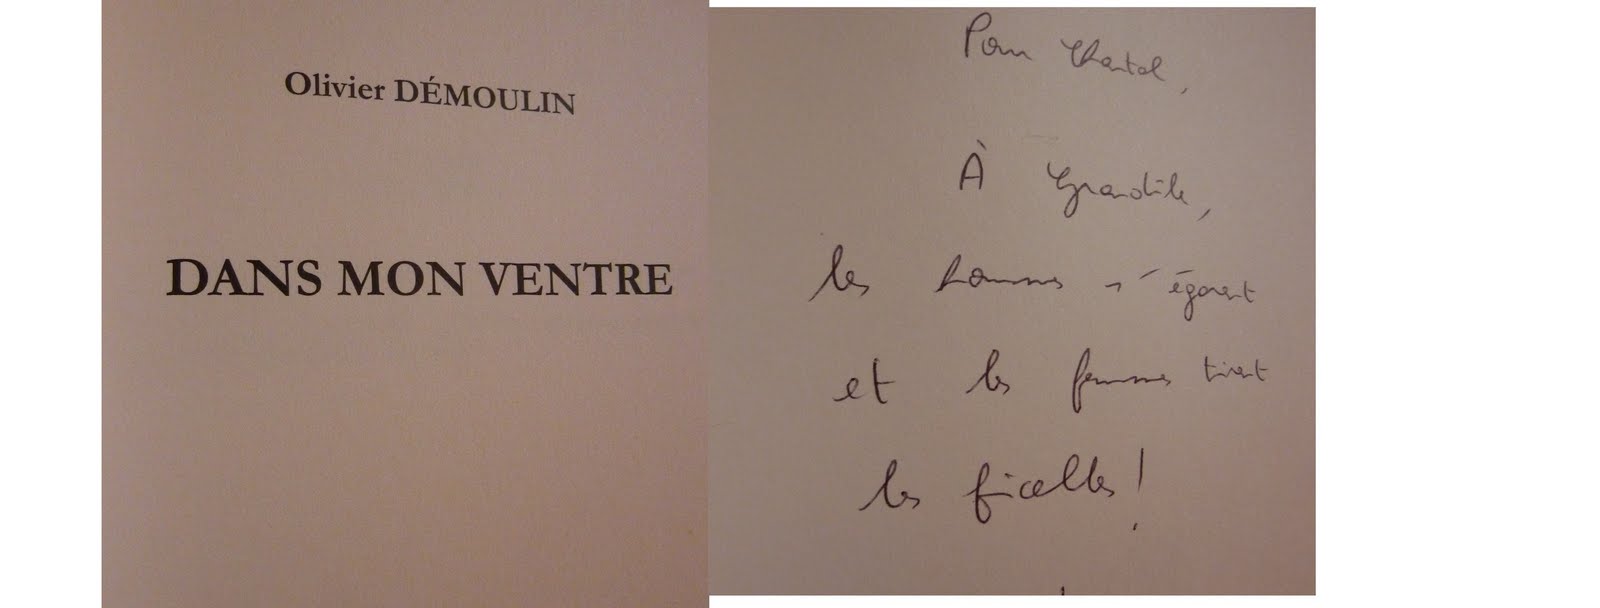 Olivier DÉMOULIN
DANS MON VENTRE
Pour Chantal,
À Grandile,
les hommes s'égarent
et les femmes tirent
les ficelles !